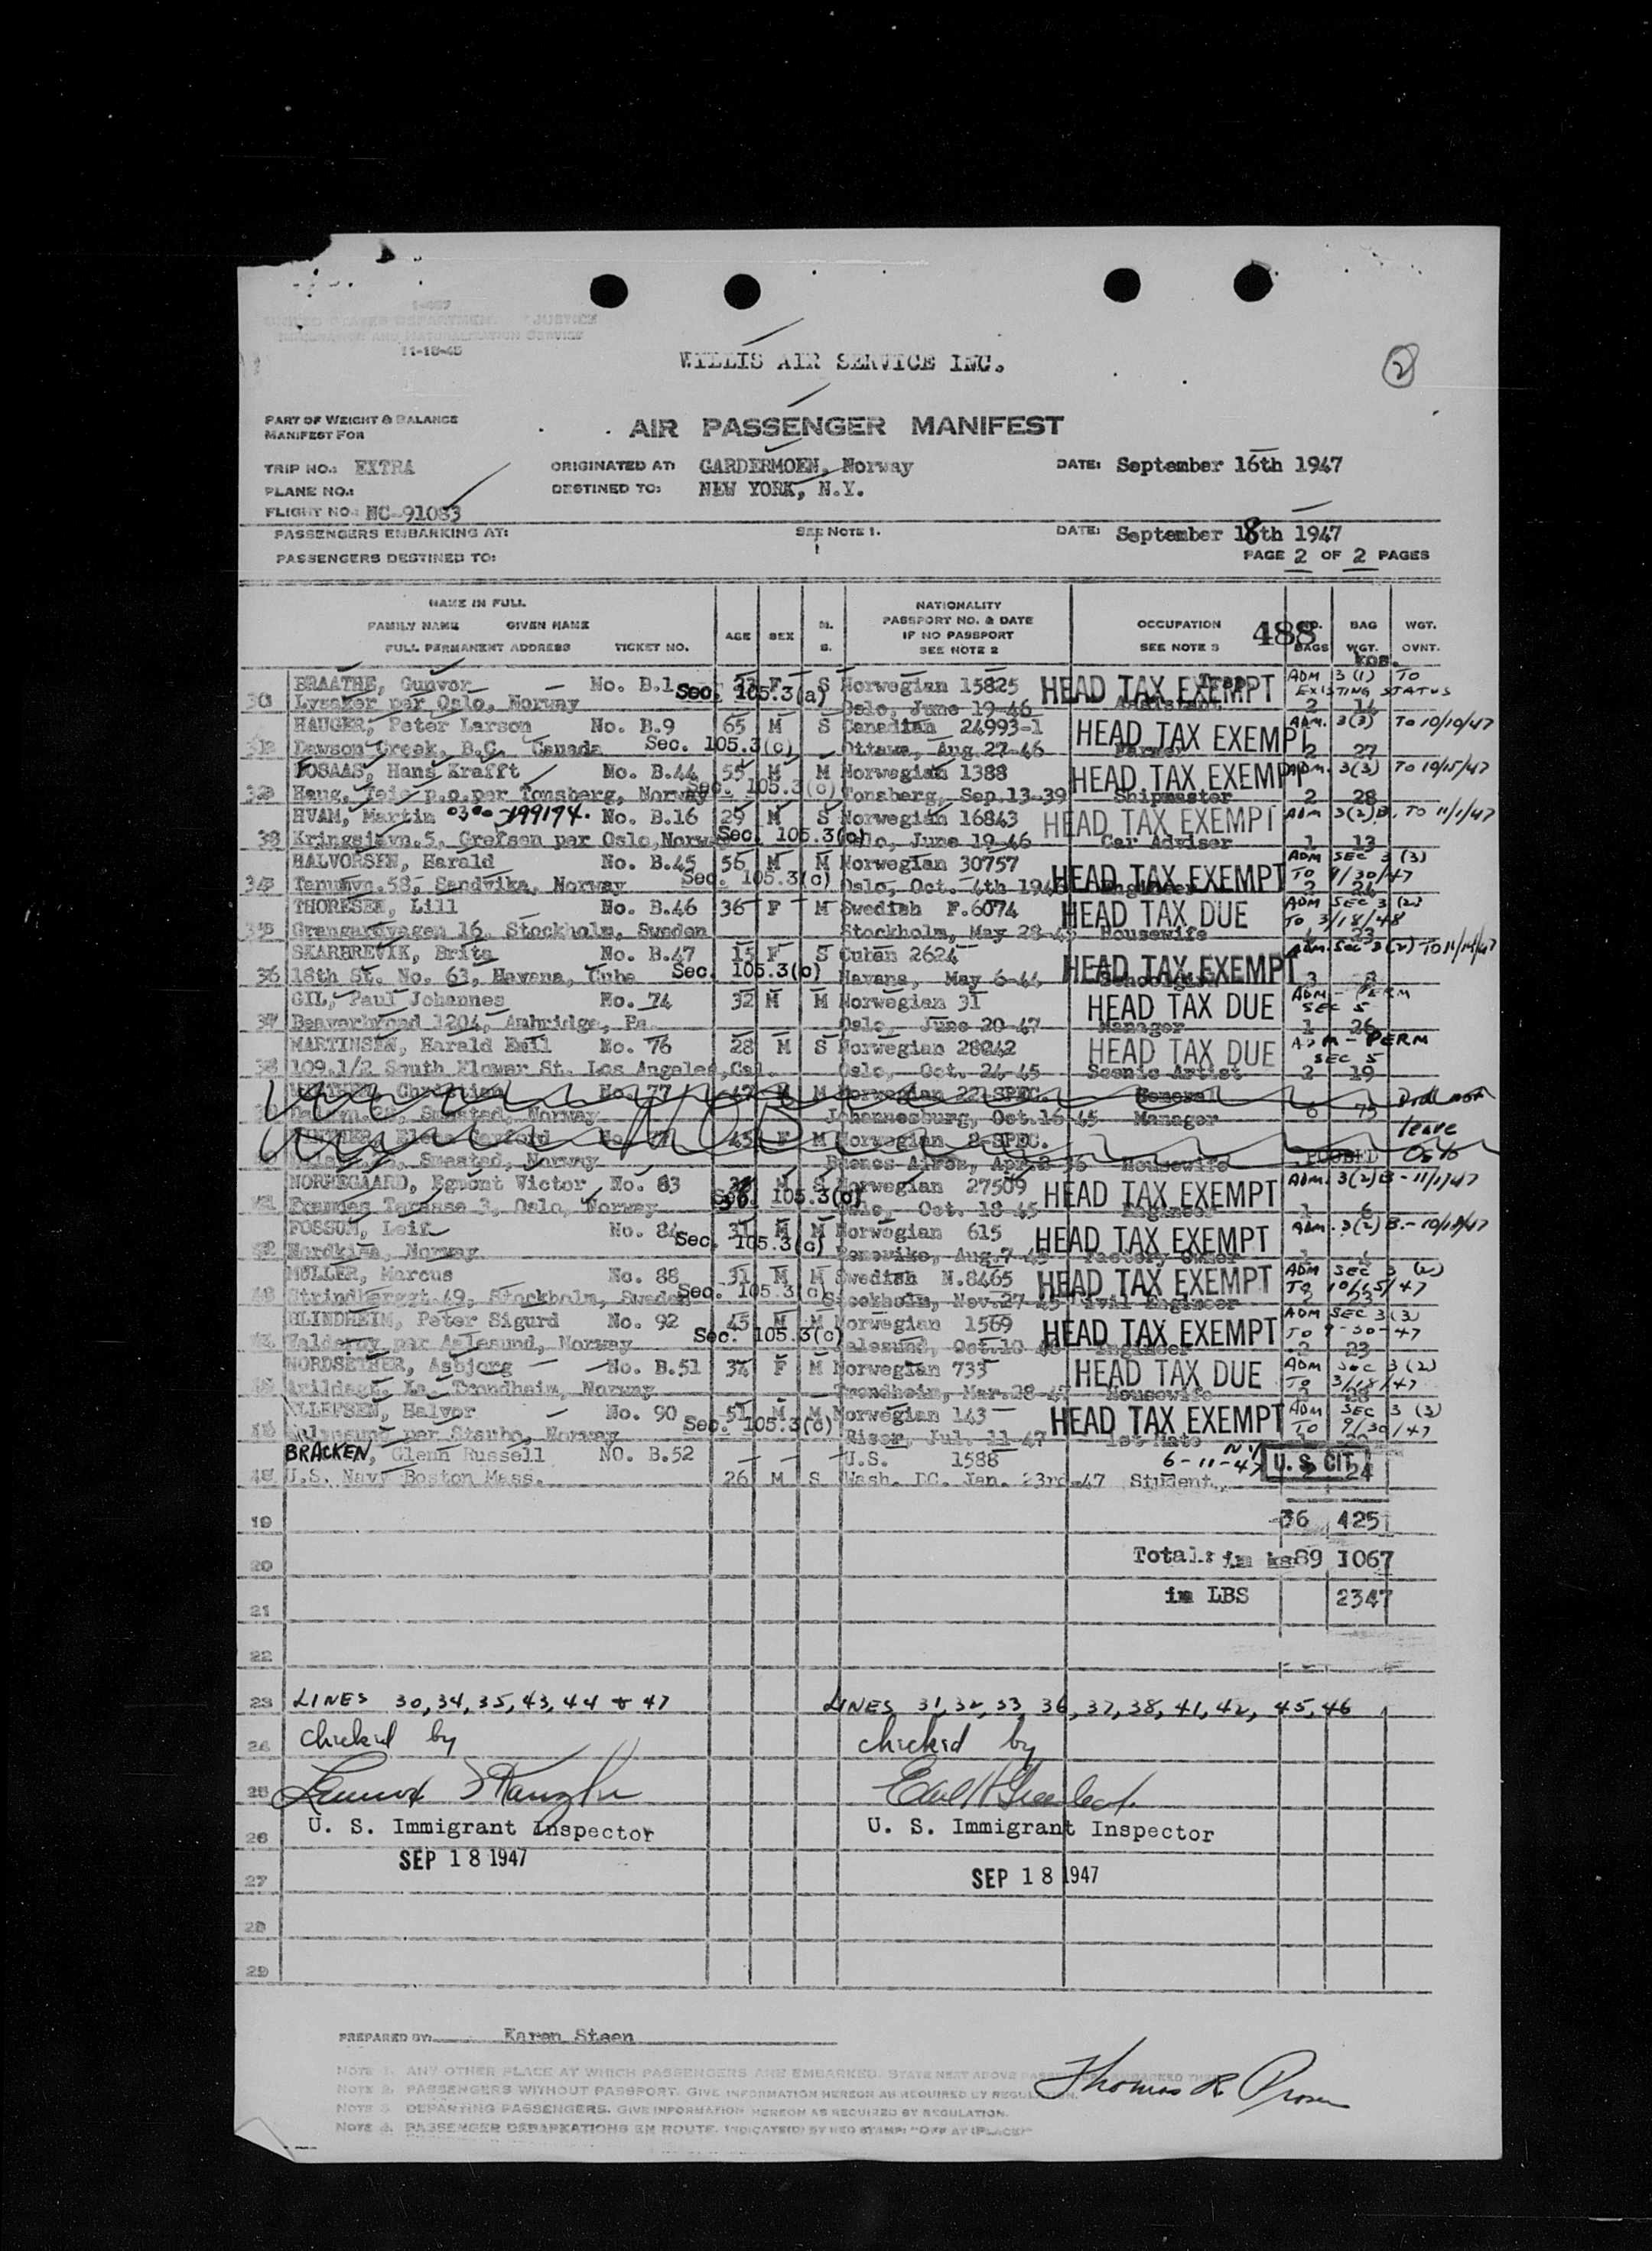 1-467
UNITED STATES DEPARTMENT JUSTICE
IMMIGRATION AND NATURALIZATION SERVICE
11-15-45
WILLIS AIR SERVICE INC.
2
PART OF WEIGHT & BALANCE
MANIFEST FOR
AIR PASSENGER MANIFEST
TRIP NO.: EXTRA ORIGINATED AT: GARDERMOEN, Norway DATE: September 16th 1947
PLANE NO.: DESTINED TO: NEW YORK, N.Y.
FLIGHT NO.: NC-91083
PASSENGERS EMBARKING AT: SEE NOTE 1. DATE: September 18th 1947
PASSENGERS DESTINED TO: PAGE 2 OF 2 PAGES
NAME IN FULL NATIONALITY
FAMILY NAME GIVEN NAME AGE SEX M. PASSPORT NO. & DATE OCCUPATION 488 BAG WGT.
FULL PERMANENT ADDRESS TICKET NO. S. IF NO PASSPORT SEE NOTE 3 BAGS WGT. OVNT.
SEE NOTE 2 KGS.
BRAATHE, Gunvor No. B.1 Sec. 105.3(a) F S Norwegian 15825 HEAD TAX EXEMPT ADM 3(1) TO
30 Lysaker per Oslo, Norway Oslo, June 19-46 Assistant EXISTING STATUS 2 14
HAUGER, Peter Larson No. B.9 65 M S Canadian 24993-1 HEAD TAX EXEMPT ADM. 3(3) TO 10/10/47
31 Dawson Creek, B.C. Canada Sec. 105.3(c) Ottawa, Aug 27-46 Farmer 2 27
FOSAAS, Hans Krafft No. B.44 55 M M Norwegian 1388 HEAD TAX EXEMPT ADM. 3(3) TO 10/15/47
32 Haug, Teie p.o. per Tonsberg, Norway Sec. 105.3(c) Tonsberg, Sep.13-39 Shipmaster 2 28
HVAM, Martin 0300-199174. No. B.16 29 M S Norwegian 16843 HEAD TAX EXEMPT ADM 3(2)B. TO 11/1/47
33 Kringsjavn.5, Grefsen per Oslo, Norway Sec. 105.3(c) Oslo, June 19-46 Car Adviser 1 13
HALVORSEN, Harald No. B.45 56 M M Norwegian 30757 HEAD TAX EXEMPT ADM SEC 3 (3)
34 Terumvn.58, Sandvika, Norway Sec. 105.3(c) Oslo, Oct. 4th 1946 Engineer TO 9/30/47 2 24
THORESEN, Lill No. B.46 36 F M Swedish F.6074 HEAD TAX DUE ADM SEC 3 (2)
35 Grangardvagen 16, Stockholm, Sweden Stockholm, May 28-45 Housewife TO 3/18/48 23
SKARBREVIK, Brita No. B.47 15 F S Cuban 2624 HEAD TAX EXEMPT ADM. SEC 3(2) TO 11/14/47
36 18th St. No. 63, Havana, Cuba Sec. 105.3(c) Havana, May 6-44 Schoolgirl 3
GIL, Paul Johannes No. 74 32 M M Norwegian 31 HEAD TAX DUE ADM - PERM
37 Beaverbroad 1204, Ambridge, Pa. Oslo, June 20-47 Manager SEC 5 1 26
MARTINSEN, Harald Emil No. 76 28 M S Norwegian 28242 HEAD TAX DUE ADM - PERM
38 109.1/2 South Flower St. Los Angeles, Cal. Oslo, Oct. 24-45 Scenic Artist SEC 5 2 19
Christian No. 77 47 M M Norwegian 22-SPEC. General Did not
Smestad, Norway Johannesburg, Oct.16-45 Manager 6 75 leave
45 F M Norwegian 2-SPEC. Oslo
Smestad, Norway Buenos Aires, Apr.8-36 Housewife POOLED
NORREGAARD, Egmont Victor No. 83 M S Norwegian 27509 HEAD TAX EXEMPT ADM. 3(2)B - 11/1/47
41 Frannes Terasse 3, Oslo, Norway Sec. 105.3(c) Oslo, Oct. 18-45 Engineer 1 6
FOSSUM, Leif No. 84 31 M M Norwegian 615 HEAD TAX EXEMPT ADM. 3(2)B.- 10/18/47
42 Norway Sec. 105.3(c) Aug.7-45 Factory Owner
MÜLLER, Marcus No. 88 31 M M Swedish N.8465 HEAD TAX EXEMPT ADM SEC 3 (2)
43 Strindberggt.49, Stockholm, Sweden Sec. 105.3(c) Stockholm, Nov.27-45 Civil Engineer TO 10/15/47
BLINDHEIM, Peter Sigurd No. 92 45 M M Norwegian 1569 HEAD TAX EXEMPT ADM SEC 3 (3)
44 Valderoy per Aalesund, Norway Sec. 105.3(c) Aalesund, Oct.10 Engineer TO 9-30-47 2 23
NORDSETHER, Asbjorg No. B.51 34 F M Norwegian 733 HEAD TAX DUE ADM SEC 3 (2)
Arildsgt. Trondheim, Norway Trondheim, Mar.28-47 Housewife TO 3/18/47 28
ELLEFSEN, Halvor No. 90 51 M M Norwegian 143 HEAD TAX EXEMPT ADM SEC 3 (3)
per Staubo, Norway Sec. 105.3(c) Risor, Jul. 11-47 1st Mate TO 9/30/47
BRACKEN, Glenn Russell NO. B.52 U.S. 1588 NY 6-11-47 U. S. CIT.
48 U.S. Navy Boston Mass. 26 M S Wash. DC. Jan. 23rd-47 Student 24
19 36 425
20 Total: in kg 89 1067
in LBS 2347
21
22
23 LINES 30, 34, 35, 43, 44 & 47 LINES 31, 32, 33, 36, 37, 38, 41, 42, 45, 46
24 checked by checked by
25
26 U. S. Immigrant Inspector U. S. Immigrant Inspector
SEP 18 1947 SEP 18 1947
27
28
29
PREPARED BY: Karen Steen
NOTE 1. ANY OTHER PLACE AT WHICH PASSENGERS ARE EMBARKED. STATE NEXT ABOVE EMBARKED THERE
NOTE 2. PASSENGERS WITHOUT PASSPORT. GIVE INFORMATION HEREON AS REQUIRED BY REGULATION.
NOTE 3. DEPARTING PASSENGERS. GIVE INFORMATION HEREON AS REQUIRED BY REGULATION.
NOTE 4. PASSENGER DEBARKATIONS EN ROUTE. INDICATE(D) BY RED STAMP: "OFF AT (PLACE)"
Thomas R